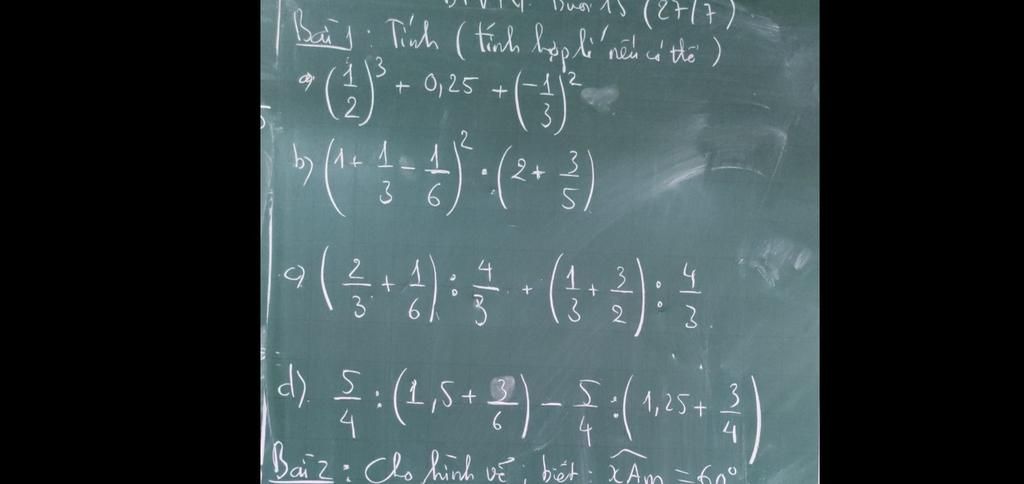 Buổi 15 (27/7)
Bài 1: Tính (tính hợp lí nếu có thể)
a) (1/2)^3 + 0,25 + (-1/3)^2
b) (1 + 1/3 - 1/6)^2 : (2 + 3/5)
c) (2/3 + 1/6) : 4/3 + (1/3 + 3/2) : 4/3
d). 5/4 : (1,5 + 3/6) - 5/4 : (1,25 + 3/4)
Bài 2: Cho hình vẽ, biết: xAm = 60°